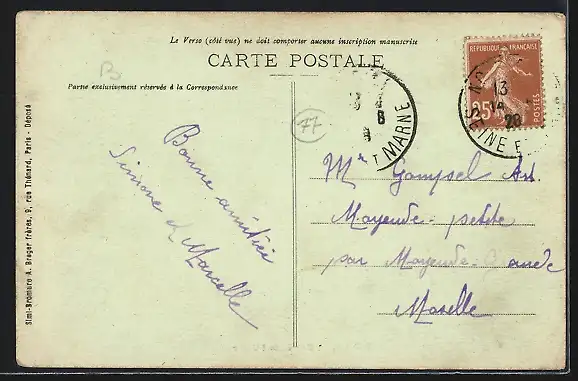 Le Verso (côté vue) ne doit comporter aucune inscription manuscrite
CARTE POSTALE
Partie exclusivement réservée à la Correspondance
B
77
Simi-Bromure A. Breger frères, 9, rue Thénard, Paris - Déposé
Bonne amitiés
Simone et Marcelle
REPUBLIQUE FRANÇAISE
25
POSTES
13
28
SEINE E
8
ET MARNE
Mr Gompel Art.
Moyende petite
par Moyende Grande
Moselle